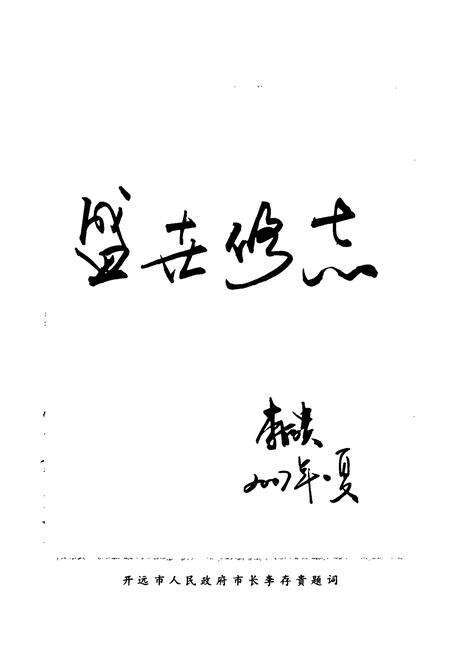 盛世修志
李存贵
2007年·夏
开远市人民政府市长李存贵题词